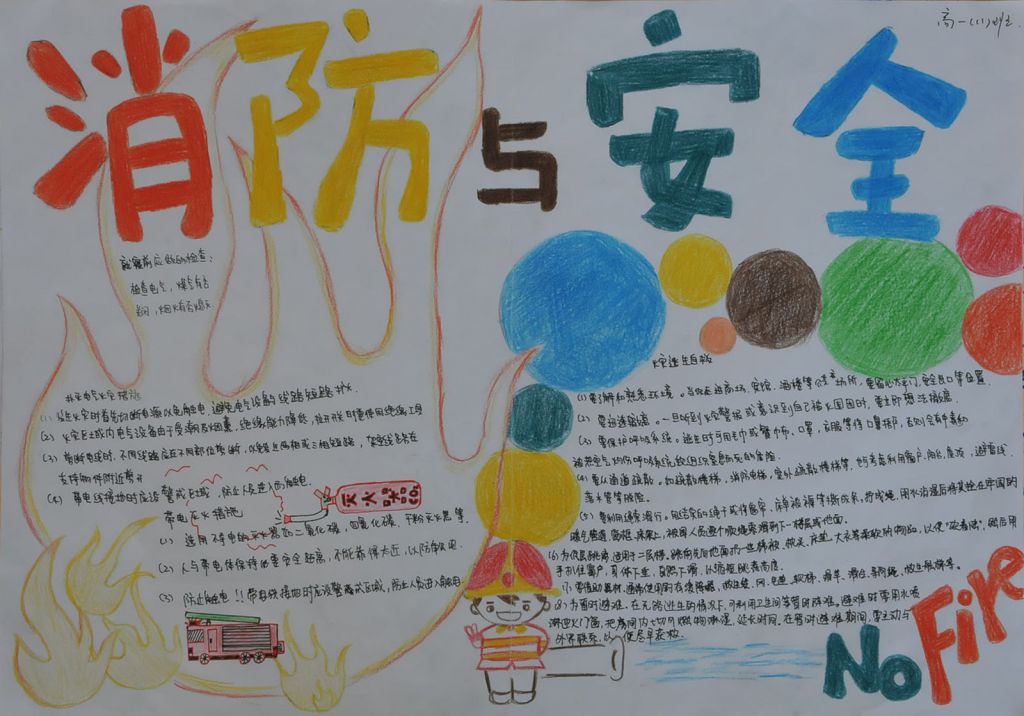 高一(1)班
消防与安全
就寝前应做的检查：
检查电气，煤气有否
关闭，烟火有否熄灭
扑灭电气火灾措施
(1) 发生火灾时首先切断电源以免触电，避免电气设备的线路短路扑火
(2) 火灾后或内电气设备由于受潮及烟熏，绝缘能力降低，拉开关时要使用绝缘工具
(3) 剪断电线时，不同线路应在不同部位剪断，以免造成两相或三相短路，
支持物件附近剪开
(4) 带电线接地时应设警戒区域，防止人员进入而触电
带电灭火措施
灭火器 CO2
(1) 选用不导电的灭火器如二氧化碳，四氯化碳，干粉灭火器等
(2) 人与带电体保持必要安全距离，不能靠得太近，以防
(3) 防止触电!! 带电线接地时应设警戒区域，防止人员进入而触电
火灾逃生自救
(1) 要了解和熟悉环境。当你走进商场、宾馆、酒楼等公共场所，要留心太平门，安全出口等位置
(2) 要迅速撤离。一旦听到火灾警报或意识到自己被火围困时，要立即想法撤离
(3) 要保护呼吸系统。逃生时可用毛巾或餐巾布、口罩，衣服等将口鼻捂严，否则会有中毒和
被热空气灼伤呼吸系统软组织窒息致死的危险
(4) 要从通道疏散。如疏散楼梯，消防电梯，室外疏散楼梯等，也可考虑利用窗户，阳台，屋顶，避雷线，
落水管等脱险。
(5) 要利用绳索滑行。用结实的绳子或将窗帘，床单被褥等撕成条，拧成绳，用水沾湿后将其拴在牢固的
暖气管道，窗框，床架上，被困人员逐个顺绳索滑到下一楼层或地面。
(6) 为低层跳离，适用于二层楼。跳前先向地面扔一些棉被、枕头、床垫、大衣等柔软的物品，以便“软着陆”，然后用
手扒住窗户，身体下垂，自然下滑，以缩短跳落高度。
(7) 要借助器材。通常使用的有缓降器，救生袋，网，气垫，软梯，滑竿，滑台，导向绳，救生舷梯等。
(8) 为暂时避难。在无路逃生的情况下，可利用卫生间等暂时避难。避难时要用水喷
淋迎火门窗，把房间内一切可燃物淋湿，延长时间。在暂时避难期间，要主动与
外界联系，以便尽早获救。
No Fire